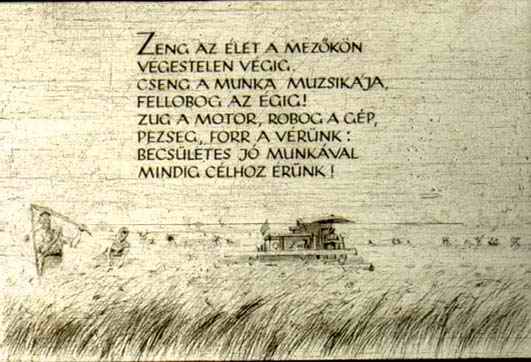 ZENG AZ ÉLET A MEZŐKÖN
VÉGESTELEN VÉGIG.
CSENG A MUNKA MUZSIKÁJA,
FELLOBOG AZ ÉGIG!
ZUG A MOTOR, ROBOG A GÉP,
PEZSEG, FORR A VÉRÜNK:
BECSÜLETES JÓ MUNKÁVAL
MINDIG CÉLHOZ ÉRÜNK!